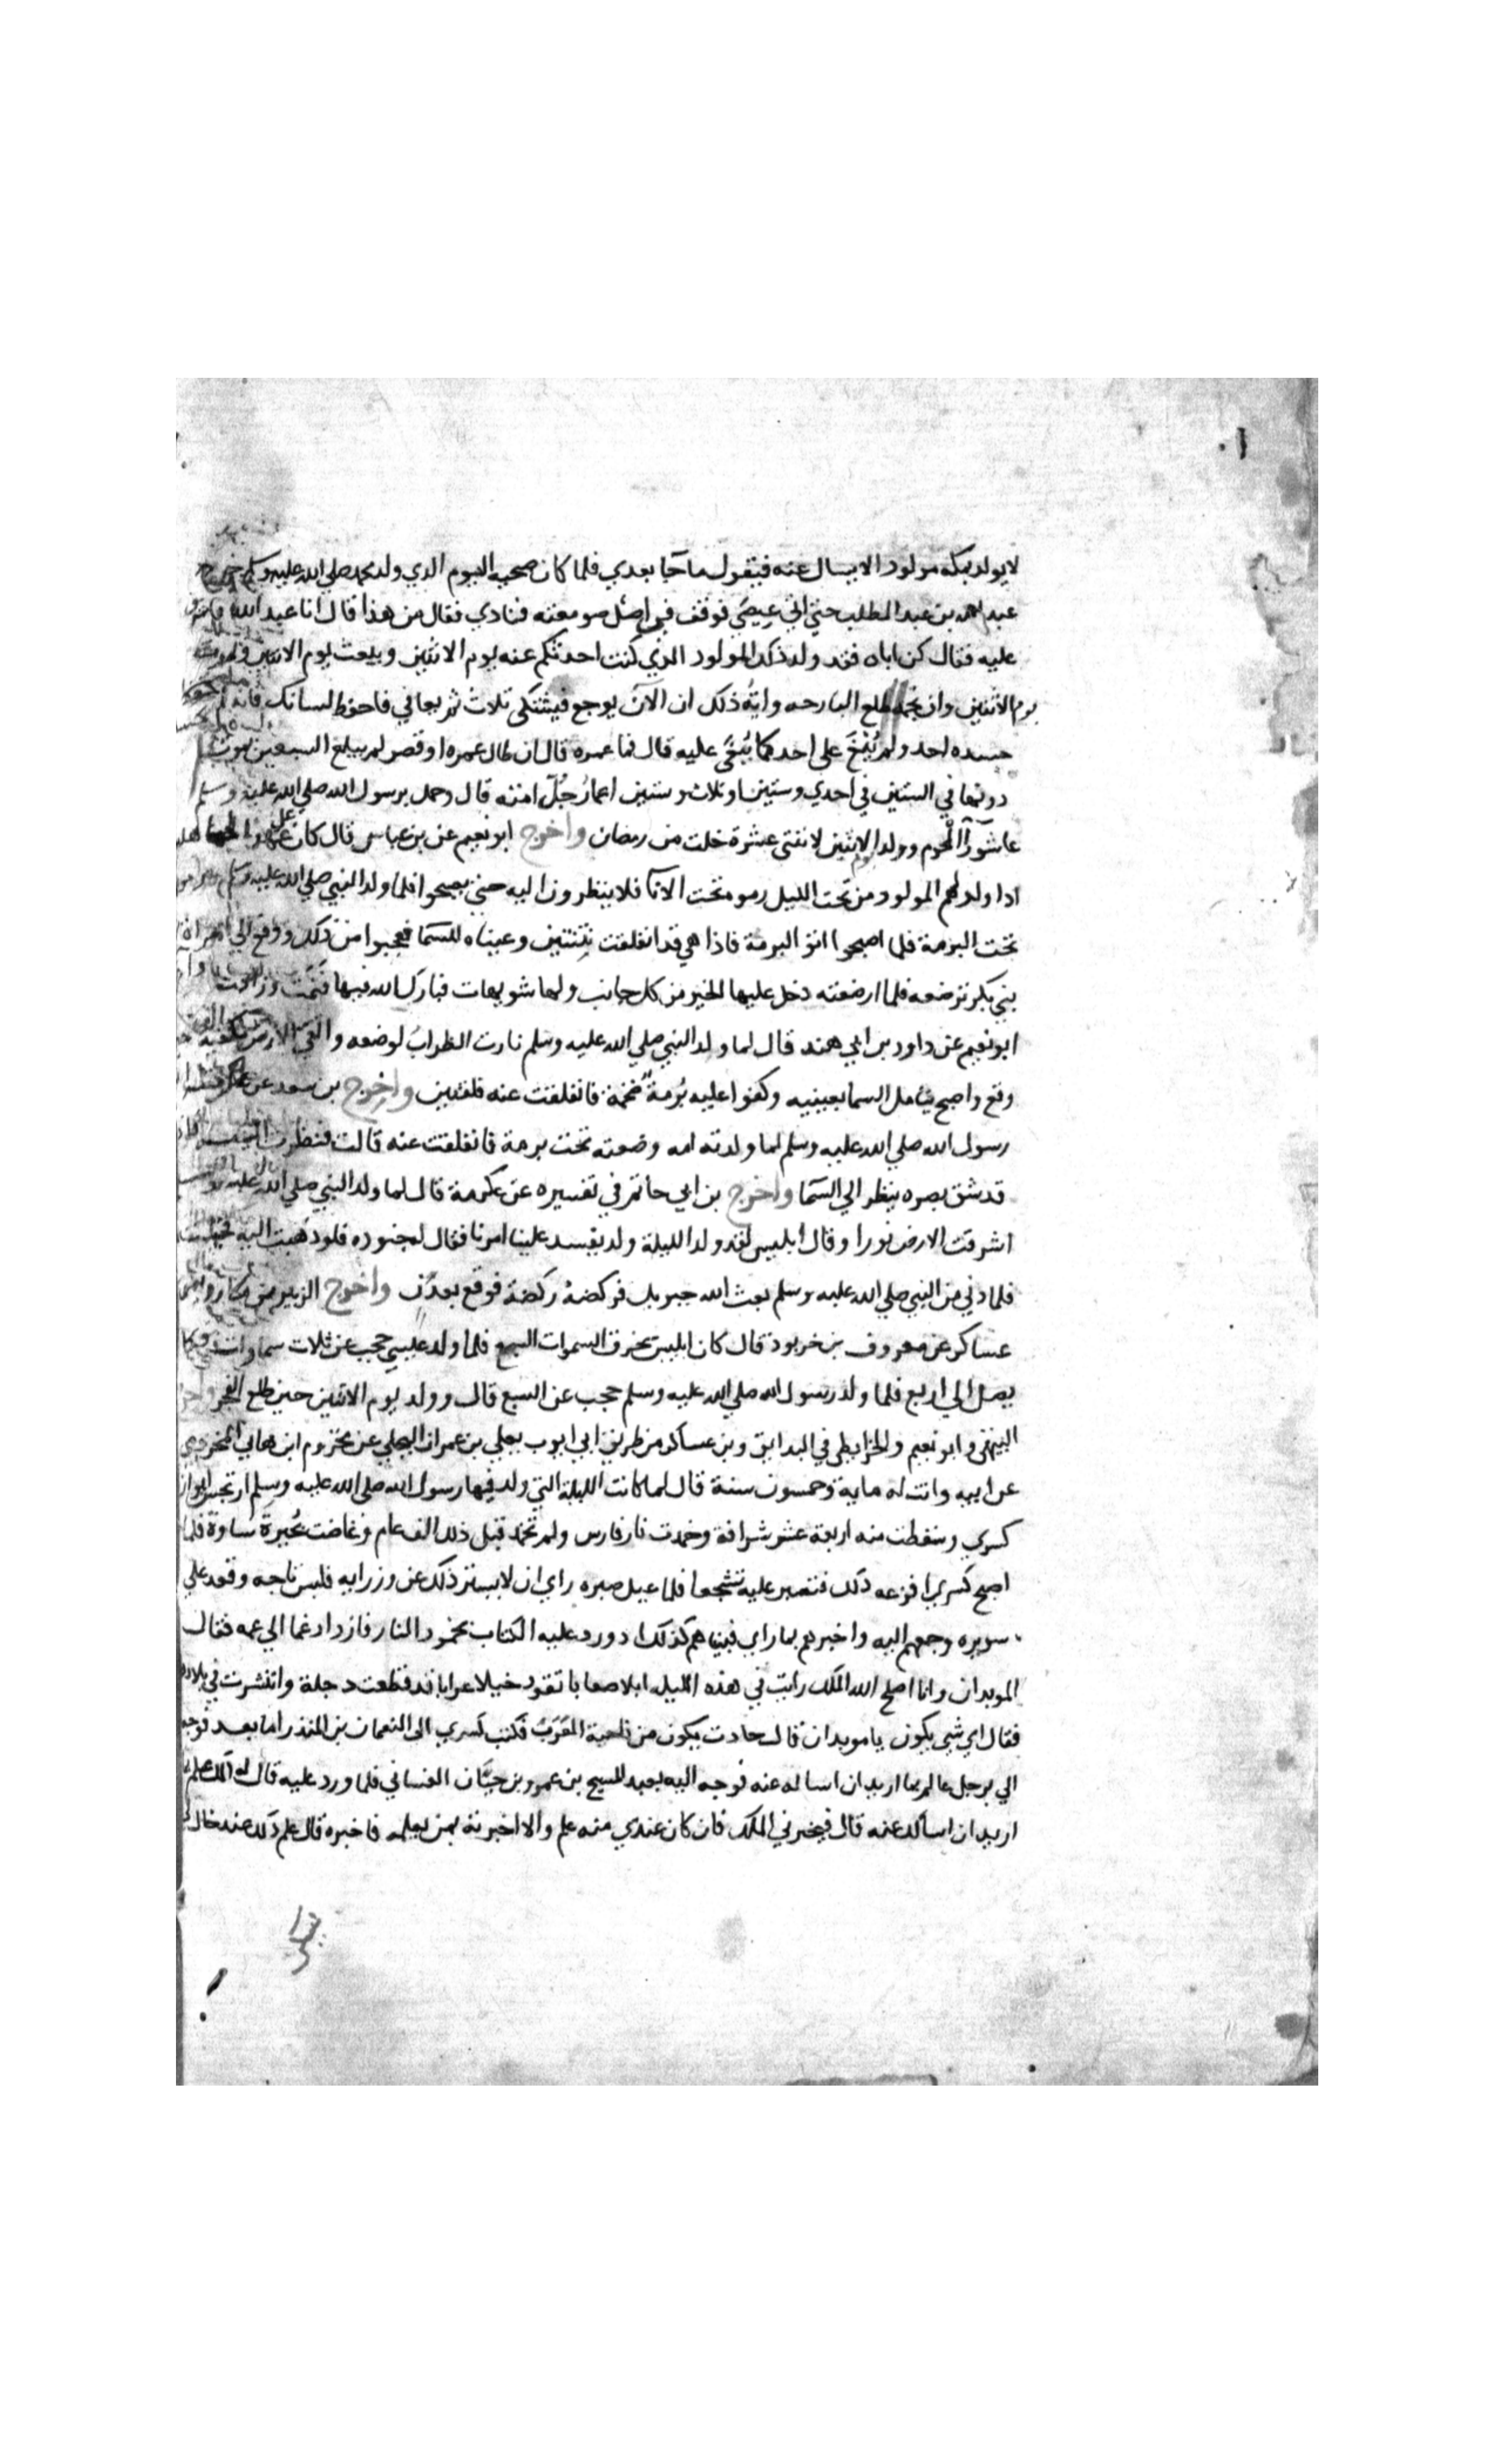 لا يولد بمكه مولود الا يسال عنه فيقول ما جا بعدي فلما كان صحبه اليوم الدي ولد محمد صلي الله عليه وسلم خرج
عبد الله بن عبد المطلب حتي اتي عيصي فوقف في اصل صومعته فنادي فقال من هذا قال انا عبد الله
عليه فقال كن اباه فقد ولد ذلك المولود الذي كنت احدثكم عنه يوم الاثنين ويبعث يوم الاثنين
يوم الاثنين وان نجمه طلع البارحه واية ذلك ان الآن يوجع فيشتكي ثلاث ثم يعافي فاحفظ لسانك فانه لم
حسده احد ولم يُبْغَ علي احد كما يُبْغَي عليه قال فما عمره قال ان طال عمره او قصر لم يبلغ السبعين يموت
دونها في الستين في احدي وستين او ثلاث وستين اعمارُ جُلّ امته قال وحمل برسول الله صلي الله عليه وسلم
عاشورآ المحرم وولد يوم الاثنين لاثنتي عشرة خلت من رمضان واخرج ابو نعيم عن بن عباس قال كان
اذا ولد لهم المولود من تحت الليل رموه تحت الانآ فلا ينظرون اليه حتي يصبحوا فلما ولد النبي صلي الله عليه وسلم
تحت البرمة فلما اصبحوا اتو البرمة فاذا هي قد انفلقت ثنتين وعيناه للسمآ فعجبوا من ذلك ودفع الي امراة
بني بكر ترضعه فلما ارضعته دخل عليها الخير من كل جانب ولها شويهات فبارك الله فيها فنمت وزادت
ابو نعيم عن داود بن ابي هند قال لما ولد النبي صلي الله عليه وسلم نارت الظرابُ لوضعه واتقي الارض بكفيه
وقع واصبح يتامل السما بعينيه وكفوا عليه بُرمةً ضخمة فانفلقت عنه فلقتين واخرج بن سعد عن عكرمة
رسول الله صلي الله عليه وسلم لما ولدته امه وضعته تحت برمة فانفلقت عنه قالت فنظرت اليه
قد شق بصره ينظر الي السمآ واخرج بن ابي حاتم في تفسيره عن عكرمة قال لما ولد النبي صلي الله عليه
اشرقت الارض نورا وقال ابليس لقد ولد الليلة ولد يفسد علينا امرنا فقال له جنوده فلو ذهبت اليه
فلما دني من النبي صلي الله عليه وسلم بعث الله جبريل فركضهُ ركضة فوقع بعدن واخرج الزبير بن بكار وابن
عساكر عن معروف بن خربوذ قال كان ابليس يخرق السموات السبع فلما ولد عيسي حجب عن ثلاث سماوات
يصل الي اربع فلما ولد رسول الله صلي الله عليه وسلم حجب عن السبع قال وولد يوم الاثنين حين طلع الفجر
البيهقي وابو نعيم والخرايطي في البداىق وبن عساكر من طريق ابي ايوب يعلي بن عمران البجلي عن مخزوم ابن هاني المخزومي
عن ابيه واتت له ماية وخمسون سنة قال لما كانت الليلة التي ولد فيها رسول الله صلي الله عليه وسلم ارتجس ايوان
كسري وسقطت منه اربعة عشر شرافة وخمدت نار فارس ولم تخمد قبل ذلك الف عام وغاضت بُحيرة ساوة فلما
اصبح كسري افزعه ذلك فتصبر عليه تشجعا فلما عيل صبره راي ان لا يستر ذلك عن وزرايه فلبس تاجه وقعد علي
سريره وجمعهم اليه واخبرهم بما راي فبينا هم كذلك اذ ورد عليه الكتاب بخمود النار فازداد غما الي غمه فقال
الموبدان وانا اصلح الله الملك رايت في هذه الليله ابلا صعابا تقود خيلا عرابا قد قطعت دجلة وانتشرت في بلادها
فقال اي شي يكون يا موبدان قال حادث يكون من ناحية العَرَبِ فكتب كسري الي النعمان بن المنذر اما بعد فوجه
الي برجل عالم بما اريد ان اساله عنه فوجه اليه بعبد المسيح بن عمرو بن حيّان الغساني فلما ورد عليه قال له الك علم بما
اريد ان اسألك عنه قال فيخبرني الملك فان كان عندي منه علم والا اخبرته بمن يعلمه فاخبره قال علم ذلك عند خال